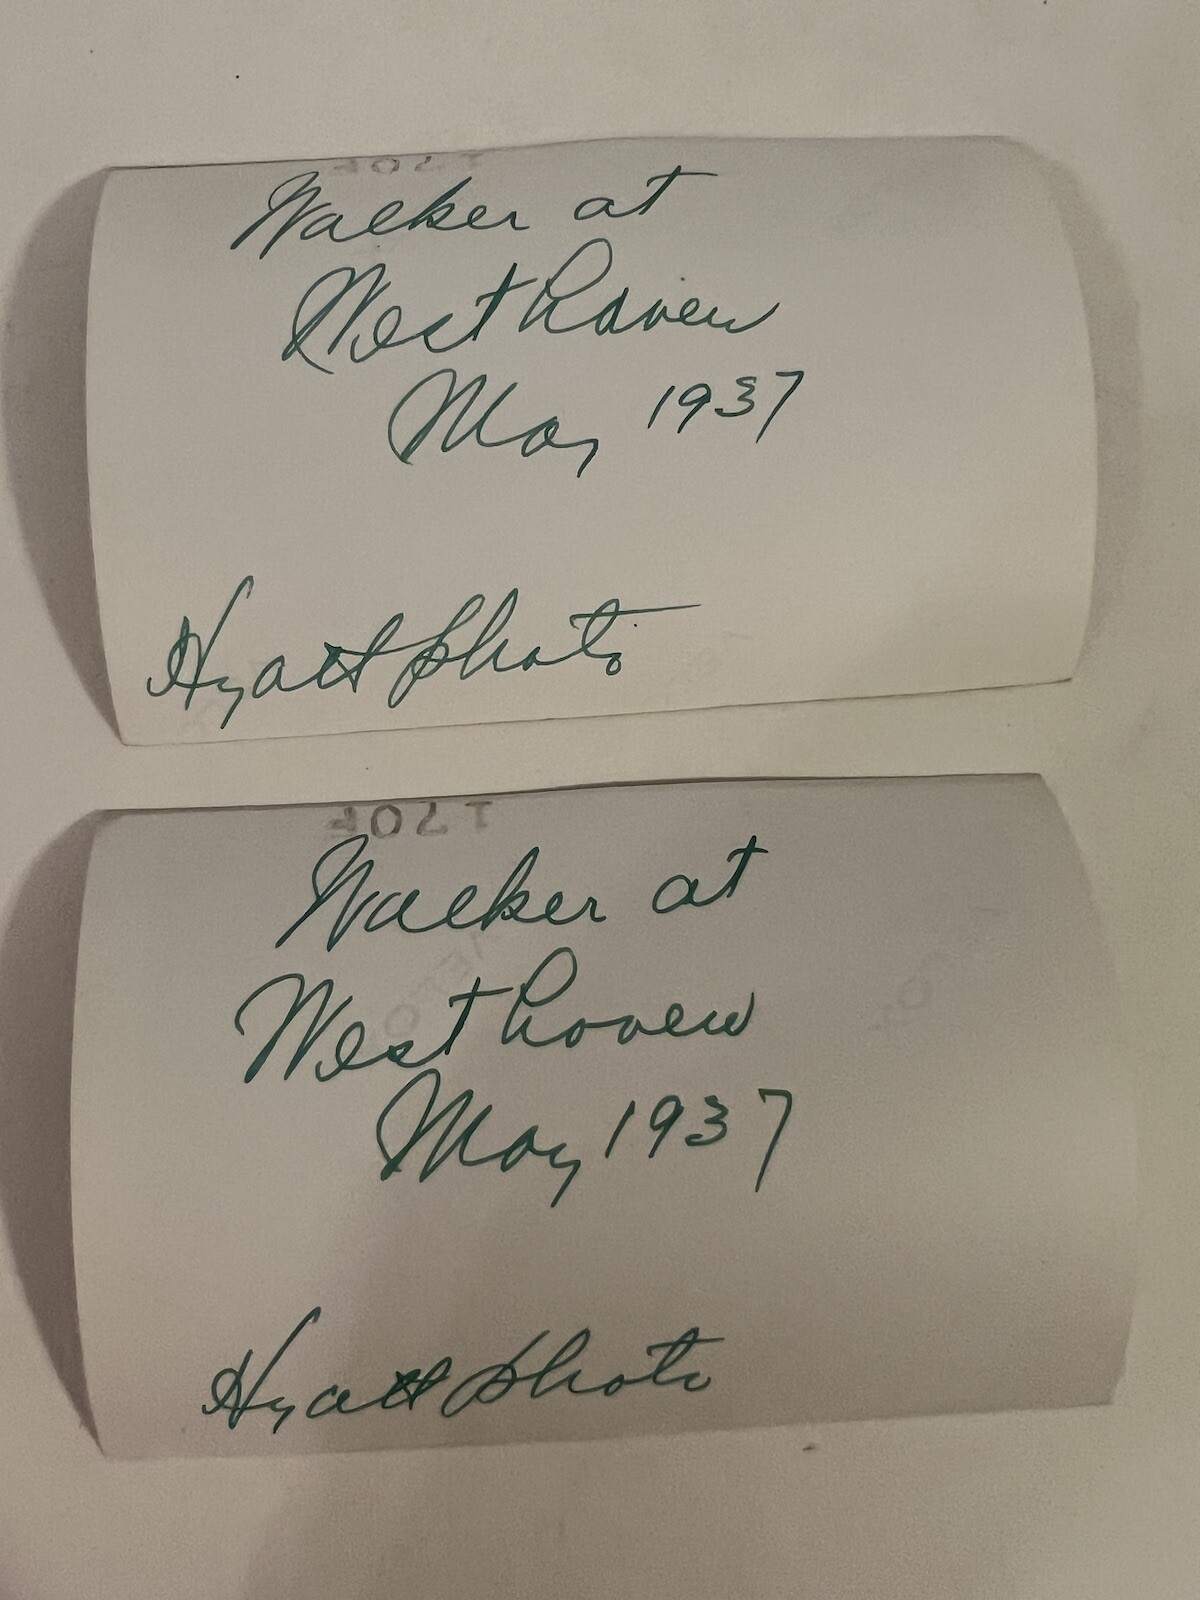 Walker at
West haven
May 1937
Hyatt photo
Walker at
West haven
May 1937
Hyatt photo